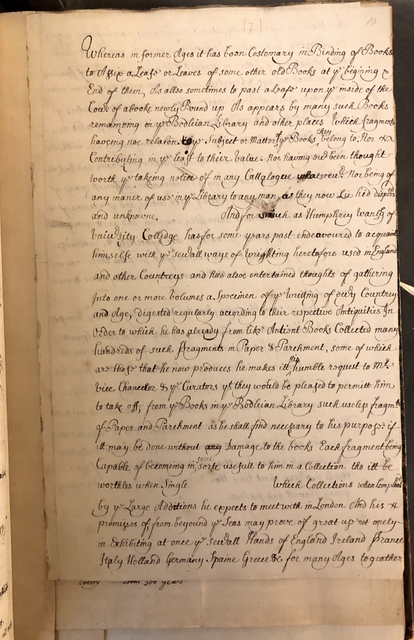 Whereas in former Ages it has been Costomary in Binding of Books
to Affix a Leafe or Leaves of some other old Books at yͤ begining &
End of them, As allso sometimes to past a Leafe upon yͤ inside of the
Cover of a Booke newly Bound up As appears by many such Books
remaineing in yͤ Bodleian Library and other places Which fragments
having noe relation to yͤ Subject or Matter of yͤ Books they belong to, Nor
Contributing in yͤ least to their Value. Nor having been thought
worth yͤ takeing notice of in any Catalogue whatsoever Nor being of
any maner of use in yͤ Library to any man, as they now Lie hid
and unknowne. And for as much as Humphrey Wanley of
University Colledge has for some years past endeavoured to acquaint
himselfe with yͤ severall ways of wrighting heretofore used in England
and other Countreys and has also entertained thoughts of gathering
into one or more Volumes a Specimen of yͤ writing of every Countrey
and Age, digested regularly according to their respective Antiquities In
order to which he has already from like Antient Books Collected many
hundreds of such fragments in Paper & Parchment, some of which
are those that he now produces he makes it his humble request to Mͬ
Vice Chancelor & yͤ Curators yͭ they would be pleased to permitt him
to take off, from yͤ Books in yͤ Bodleian Library such useless fragmts
of Paper and Parchment as he shall find necessary to his purpose if
itt may be done without any Damage to the books Each fragment being
Capable of becoming in some sorte usefull to him in a Collection tho itt be
worthles when Single. Which Collections when
by yͤ Large Additions he expects to meet with in London And his
promises of, from beyond yͤ Seas may prove of great use not onely
in Exhibiting at once yͤ severall Hands of England Ireland France
Italy Holland Germany Spaine Greece &c for many Ages together